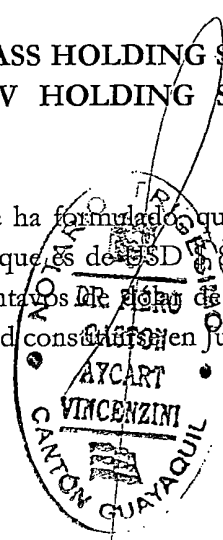 ASS HOLDING S
V HOLDING S
ha formulado, qu
que es de USD $ 8
ntavos de dólar de
d constituirse en Ju
NOTAR TRIGESIMO
DR. PIERO
GASTON
AYCART
VINCENZINI
CANTÓN GUAYAQUIL